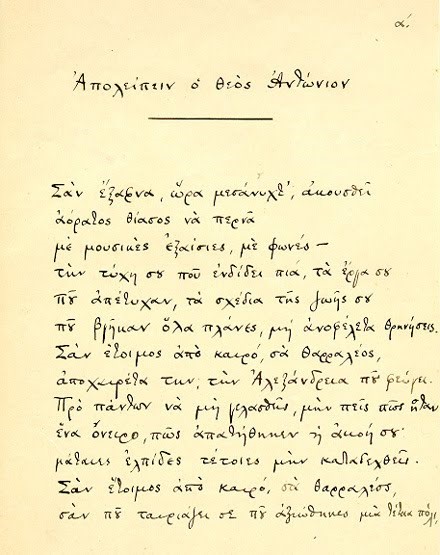 α΄.
Ἀπολείπειν ὁ θεὸς Ἀντώνιον
Σὰν ἔξαφνα, ὥρα μεσάνυχτ’, ἀκουσθεῖ
ἀόρατος θίασος νὰ περνᾶ
μὲ μουσικὲς ἐξαίσιες, μὲ φωνές —
τὴν τύχη σου ποῦ ἐνδίδει πιά, τὰ ἔργα σου
ποῦ ἀπέτυχαν, τὰ σχέδια τῆς ζωῆς σου
ποῦ βγῆκαν ὅλα πλάνες, μὴ ἀνοφέλετα θρηνήσεις.
Σὰν ἕτοιμος ἀπὸ καιρό, σὰ θαρραλέος,
ἀποχαιρέτα την, τὴν Ἀλεξάνδρεια ποῦ φεύγει.
Πρὸ πάντων νὰ μὴ γελασθῇς, μὴν πεῖς πῶς ἦταν
ἕνα ὄνειρο, πῶς ἀπατήθηκεν ἡ ἀκοή σου·
μάταιες ἐλπίδες τέτοιες μὴν καταδεχθεῖς.
Σὰν ἕτοιμος ἀπὸ καιρό, σὰ θαρραλέος,
σὰν ποῦ ταιριάζει σε ποῦ ἀξιώθηκες μιὰ τέτοια πόλι,